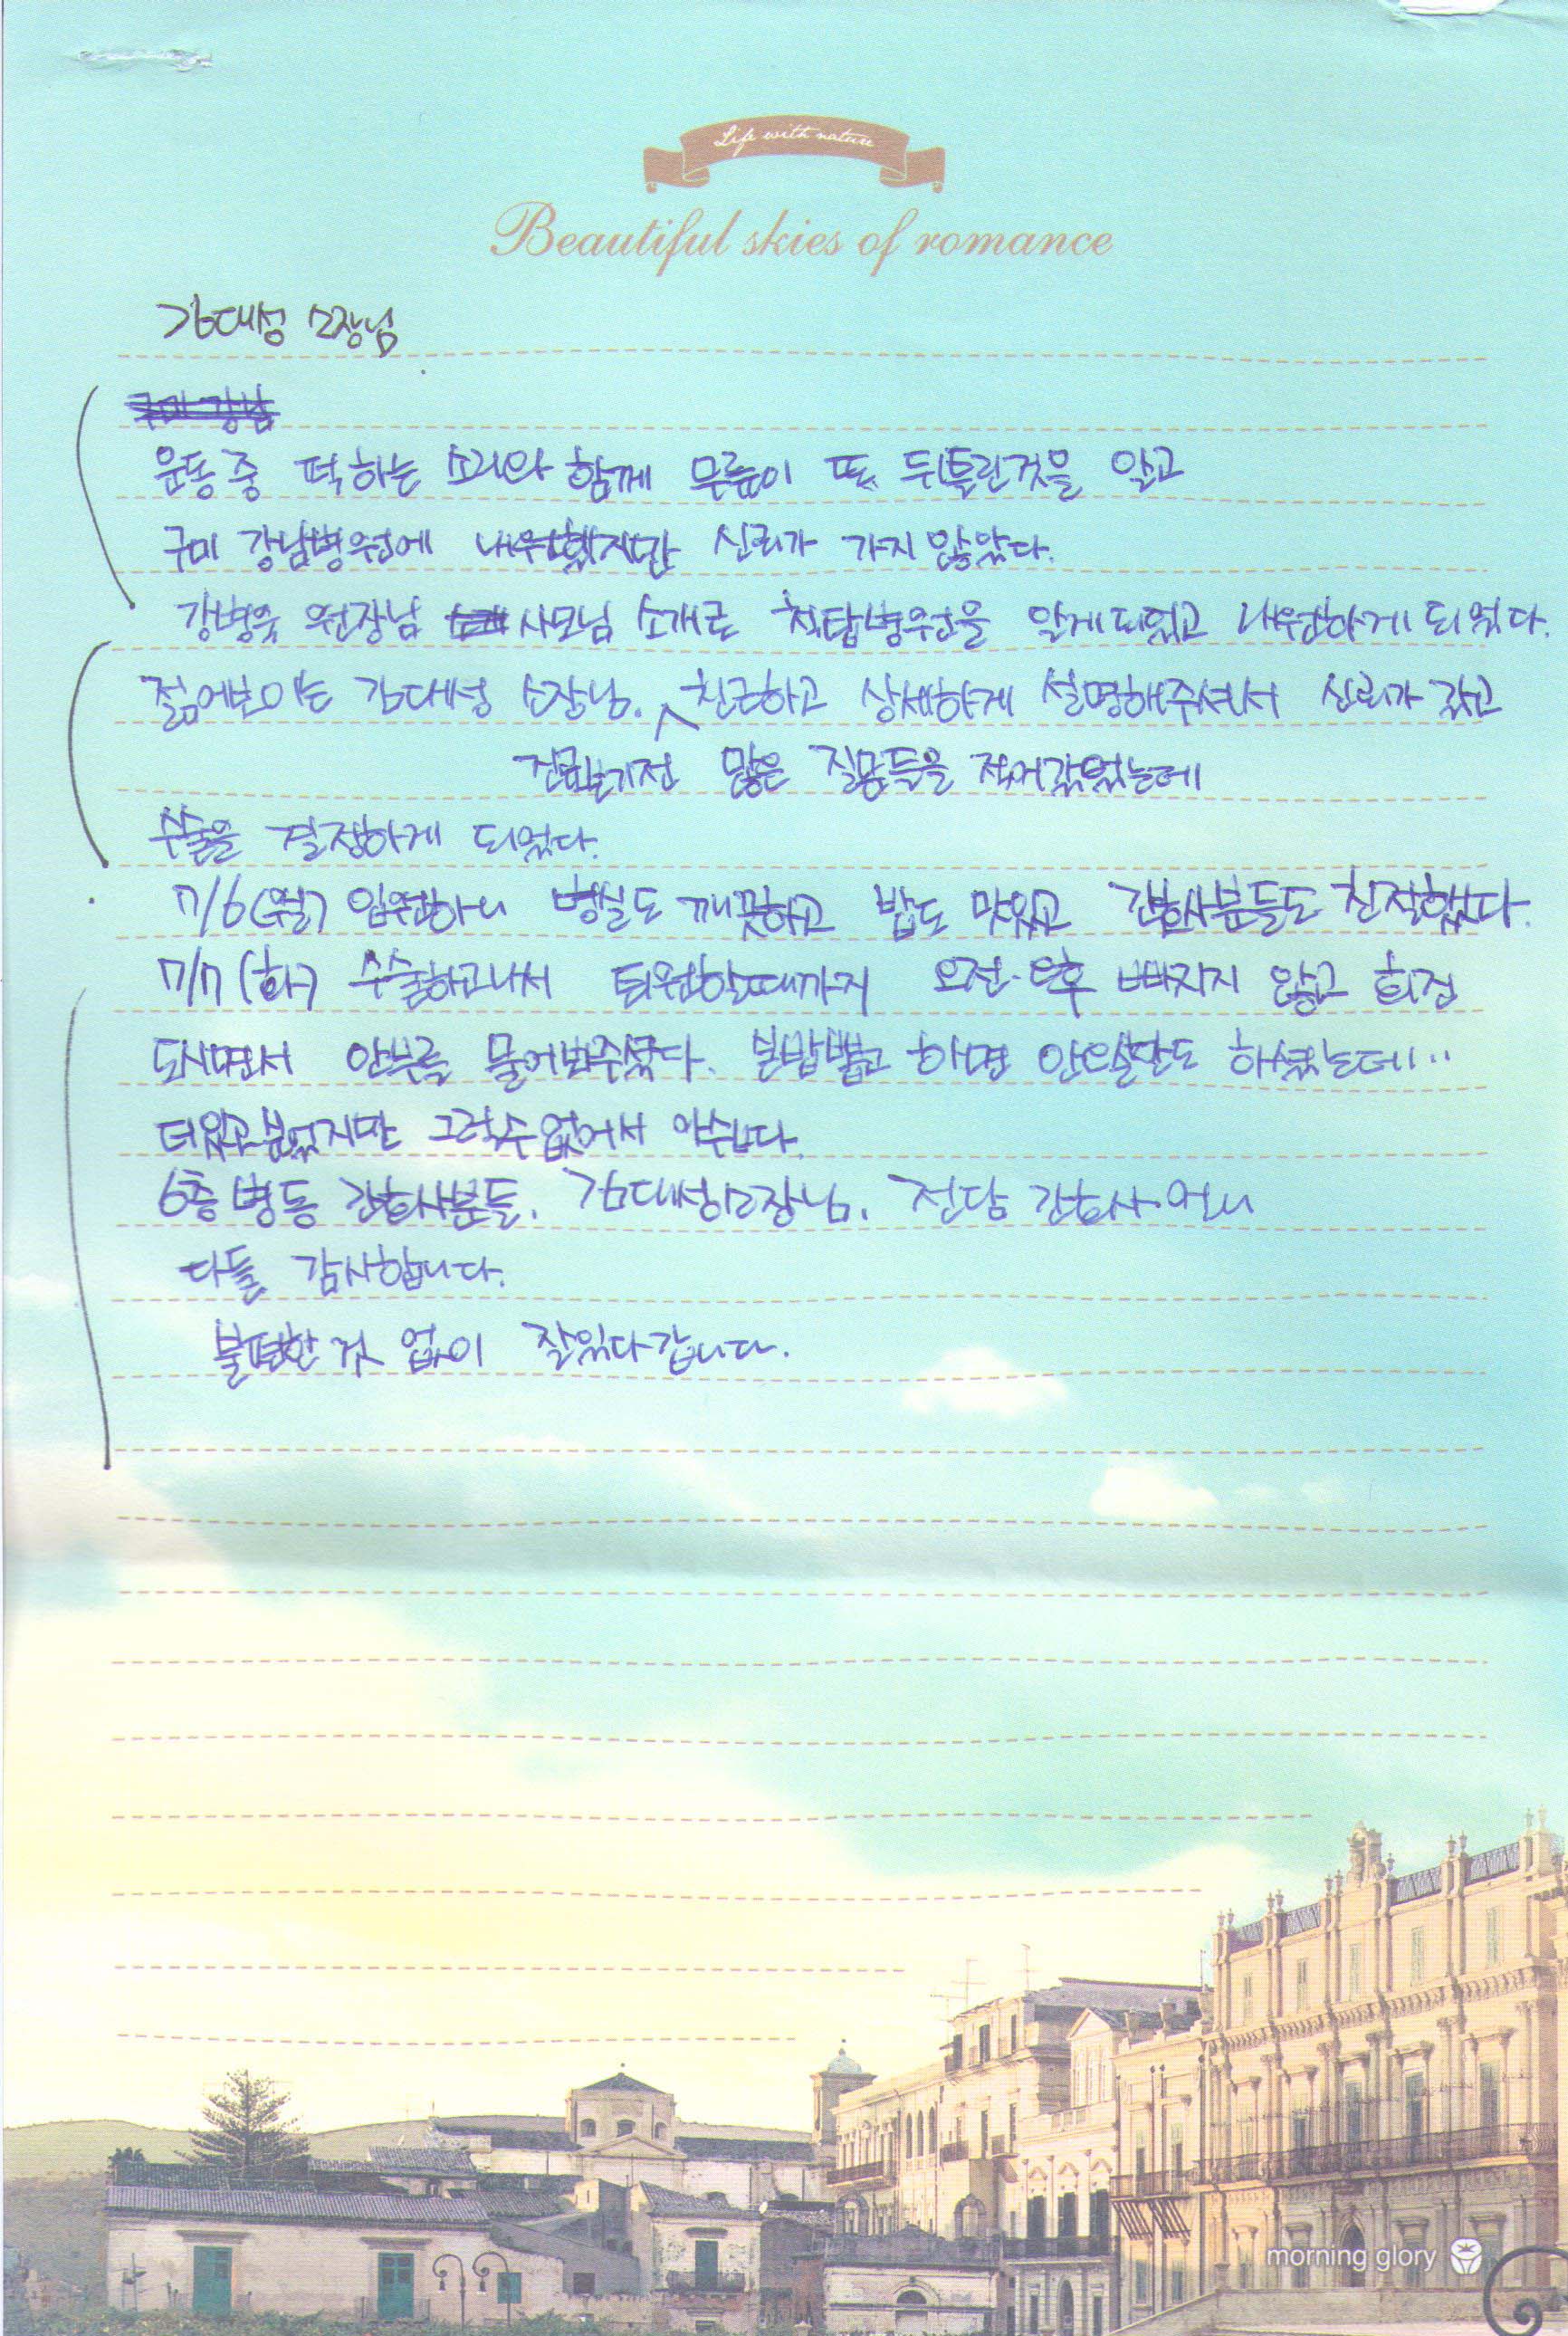 Life with nature
Beautiful skies of romance
김대성 소장님
구미 강남
운동 중 퍽 하는 소리와 함께 무릎이 또 뒤틀린것을 알고
구미 강남병원에 내원했지만 신뢰가 가지 않았다.
강병욱 원장님 사모님 소개로 척탑병원을 알게되었고 내원하게 되었다.
젊어보이는 김대성 소장님. 친근하고 상세하게 설명해주셔서 신뢰가 갔고
진료받기전 많은 질문들을 적어갔었는데
수술을 결정하게 되었다.
7/6(월) 입원하니 병실도 깨끗하고 밥도 맛있고 간호사분들도 친절했다.
7/7(화) 수술하고나서 퇴원할때까지 오전·오후 빠지지 않고 회진
도시면서 안부를 물어봐주셨다. 실밥뽑고 하면 안되냐고도 하셨는데..
더있고싶었지만 그럴수없어서 아쉽다.
6층 병동 간호사분들. 김대성소장님. 전담 간호사 언니
다들 감사합니다.
불편한 것 없이 잘있다갑니다.
morning glory